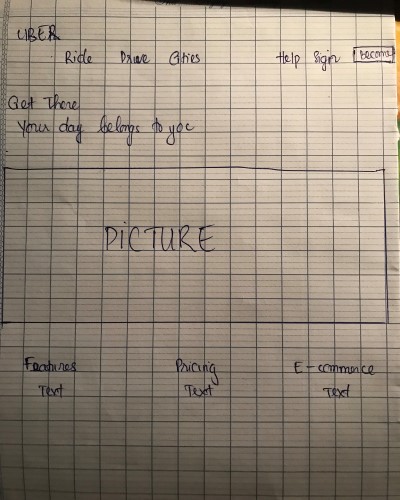 UBER
Ride Drive Cities Help Sign Become
Get There
Your day belongs to you
PICTURE
Features Pricing E-commerce
Text Text Text